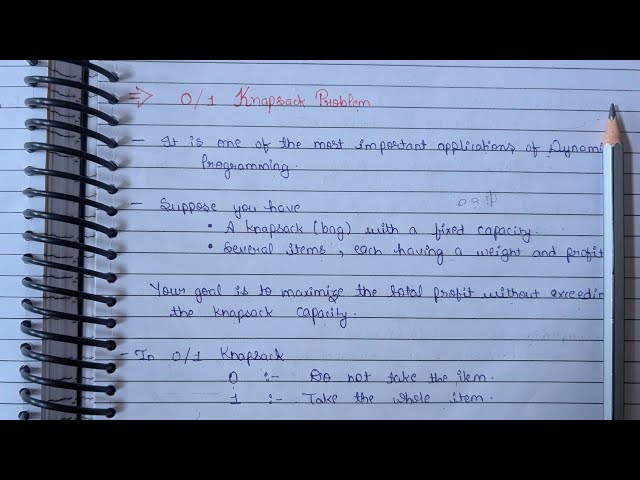 ⇒ 0/1 Knapsack Problem
- It is one of the most important applications of Dynami
Programming.
- Suppose you have
• A knapsack (bag) with a fixed capacity.
• Several items, each having a weight and profit
Your goal is to maximize the total profit without exceedin
the knapsack capacity.
- In 0/1 Knapsack
0 :- Do not take the item.
1 :- Take the whole item.